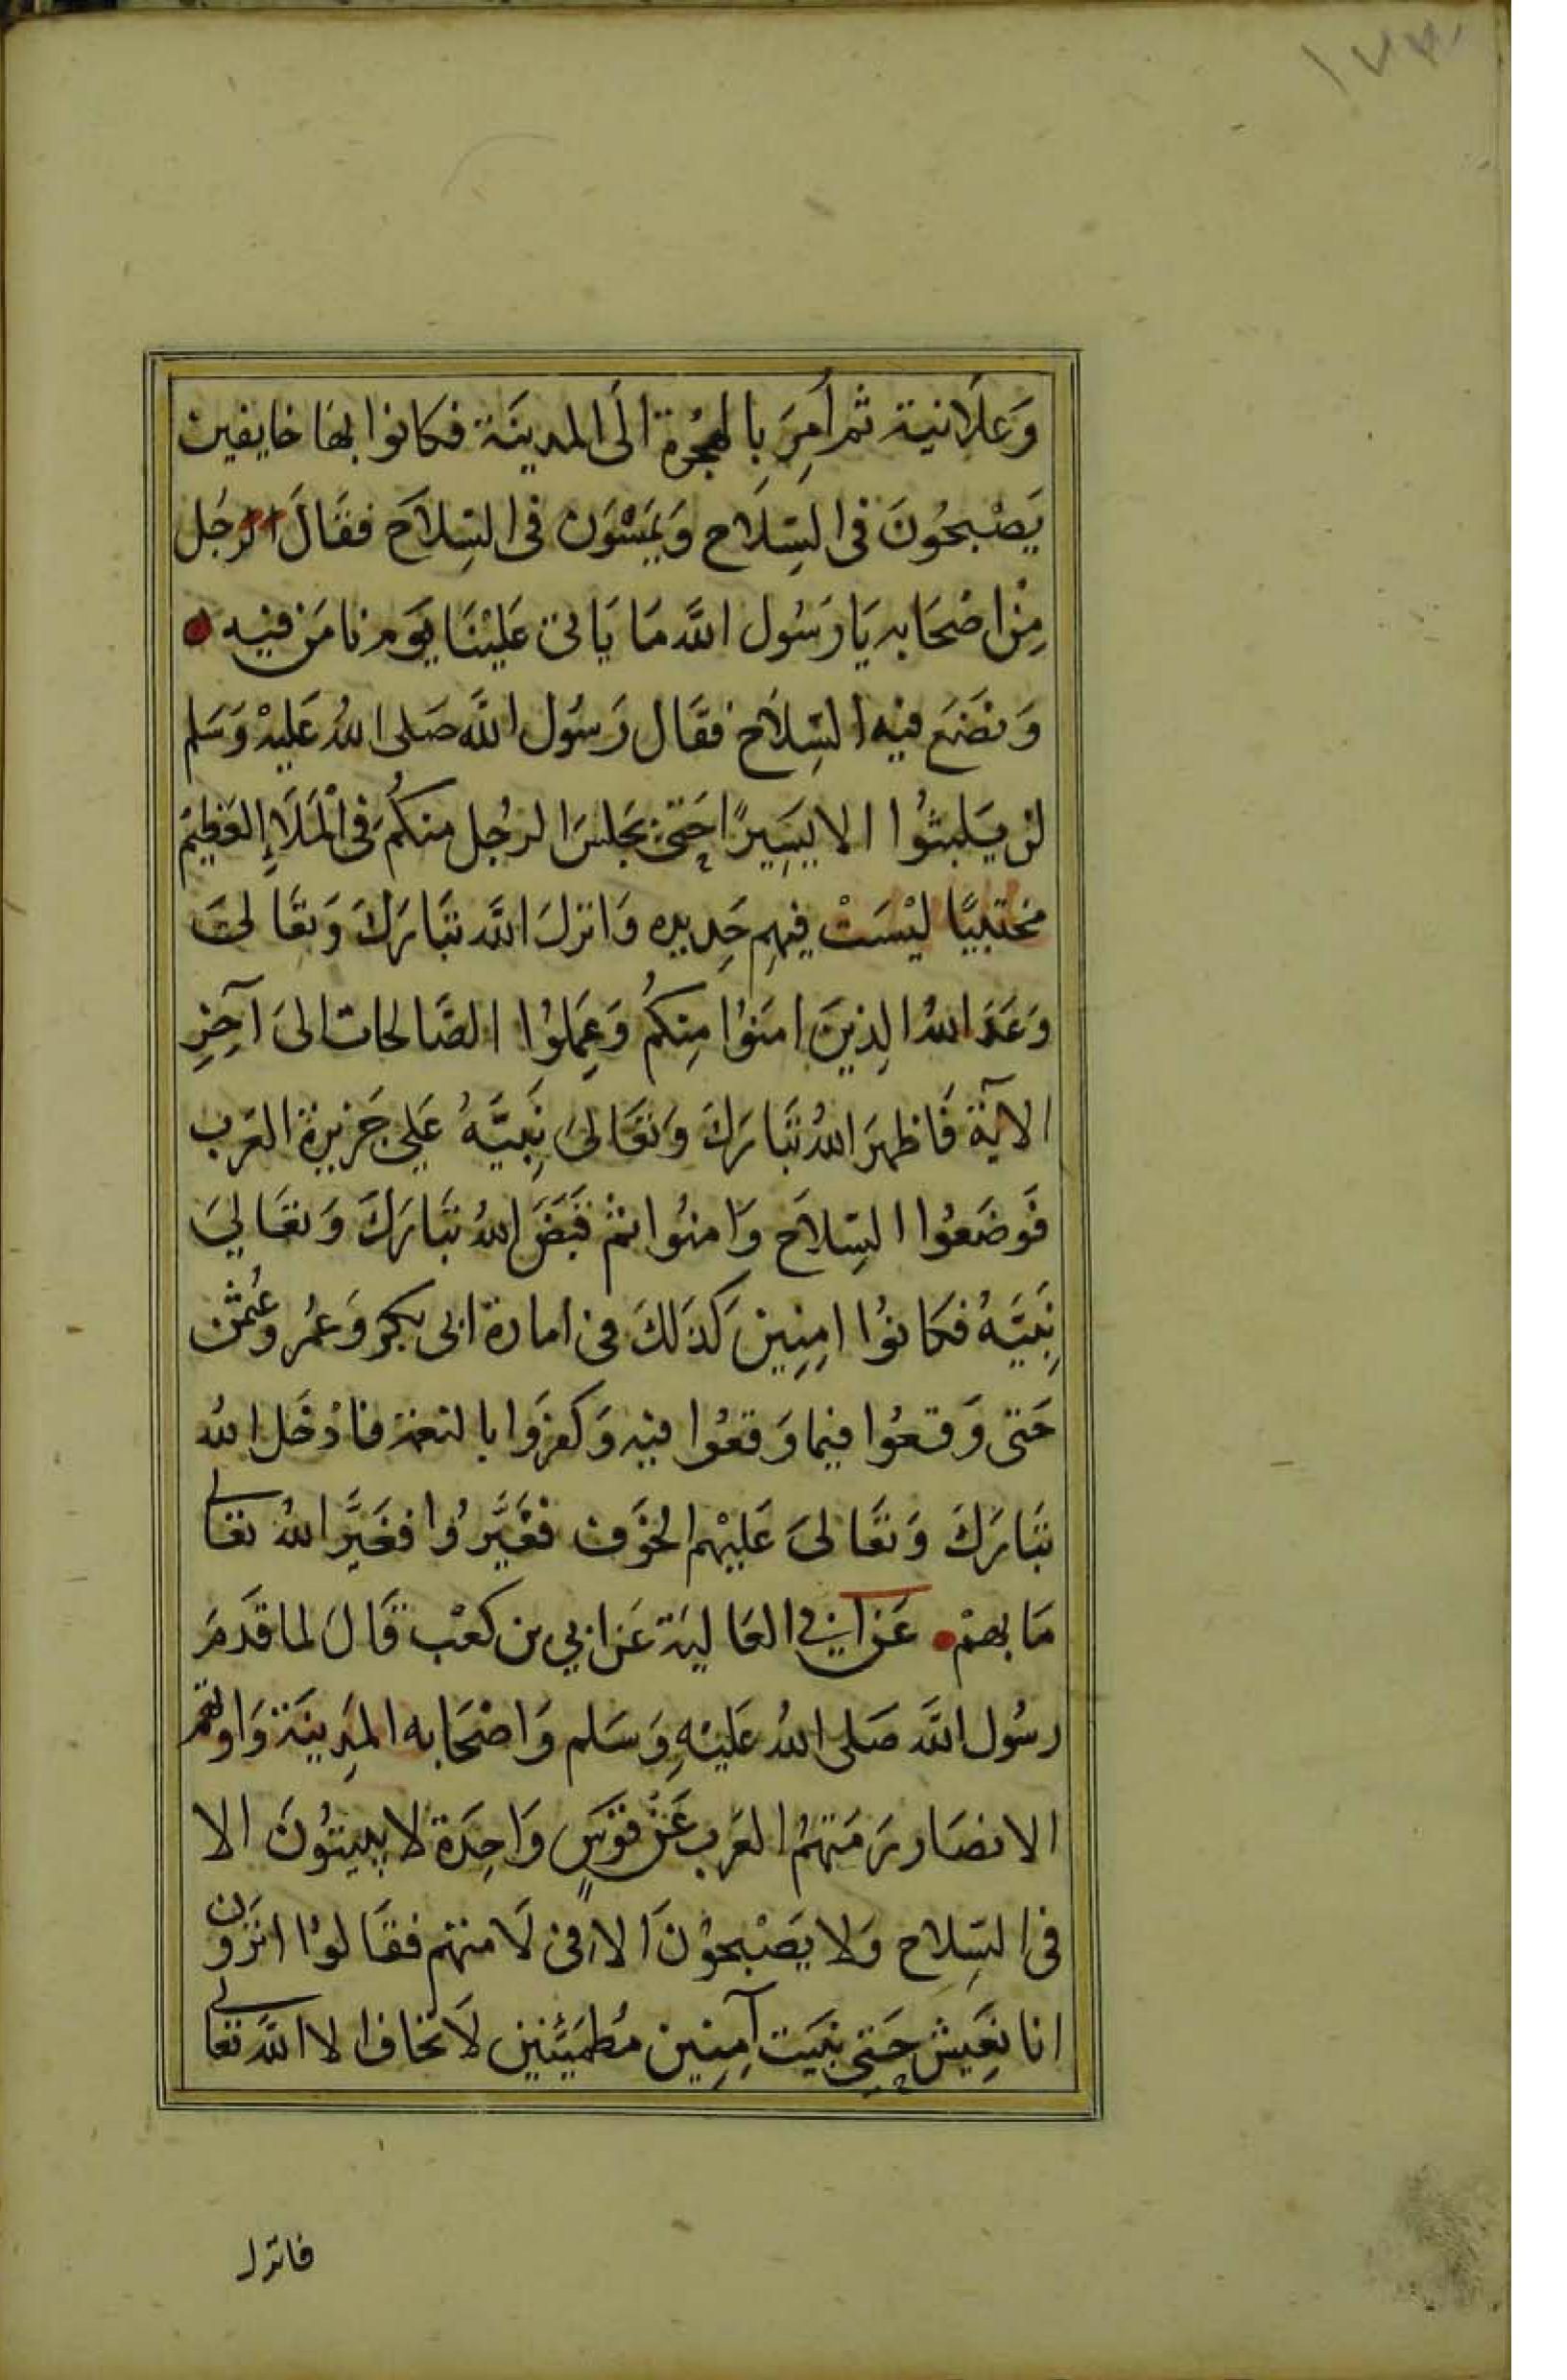 ١٧٣
وَعلَانية ثم أُمِرَ بِالهِجْرة الَى المدينَة فكانوا بها خايفين
يَصْبحُونَ فى السِلَاح وَيمْسَوُن فى السِلاَح فقَالَ الرجُل
مِنْ اصْحَابه يَا رَسُول اللَّه مَا يَاتى عَليْنَا يَوم نامَن فيْه
وَنضَع فيْه السِّلاَح فقَال رَسُول اللَّه صَلى اللهُ عَليْهْ وَسَلم
لن يَلبثُوا الا يسِيرًا حَتىَّ يجَلسَ الرجُل منكُمْ فى الْمَلَاءِ العَظيم
مُحتبيًا ليْسَتْ فيهِم حَدِيده وَانزلَ اللَّه تبَارَكَ وَتعَالىَ
وَعَدَ اللهُ الذِينَ امَنوُا مِنكُم وَعِمَلوُا الصَّالحات الىَ آخِرِ
الايَة فَاظهرَ اللهُ تَبَارَكَ وَتعَالىَ نَبِيَّهُ عَلى جَزيرة العَرَب
فَوضَعُوا السِلاَح وَامنُوا ثمْ قَبَضَ اللهُ تبَارَكَ وَتعَالىَ
نَبِيَّهُ فكانوُا امِنِين كَذلكَ فى امارة ابى بكر وَعمُر وَعُثمٰن
حَتى وَقعُوا فيما وَقعُوا فيْه وَكفرَوا بالنعمَة فادْخَل اللهُ
تبَارَكَ وَتعَالىَ عَليْهم الخَوف فغَيَّرُوا فغَيَّر اللهُ تعَالى
مَا بهمْ عَن ابي العَاليَة عَن ابي بن كعْب قَالَ لما قدَمَ
رسُول اللَّه صَلى اللهُ عَليْهِ وَسَلم وَاصْحَابه المدِينَة وَاوتهم
الانصَار رَمَتهمُ العَرب عَنْ قَوَسٍ وَاحِدَة لا يبيتُونَ الا
فى السِلاح وَلا يصْبحوُنَ الا فى لَامتهم فقَالوُا اترَون
انا نعَيش حَتى نبيَت آمِنِين مُطمَئنين لَا نخاف الا اللَّه تعَالى
فانزل